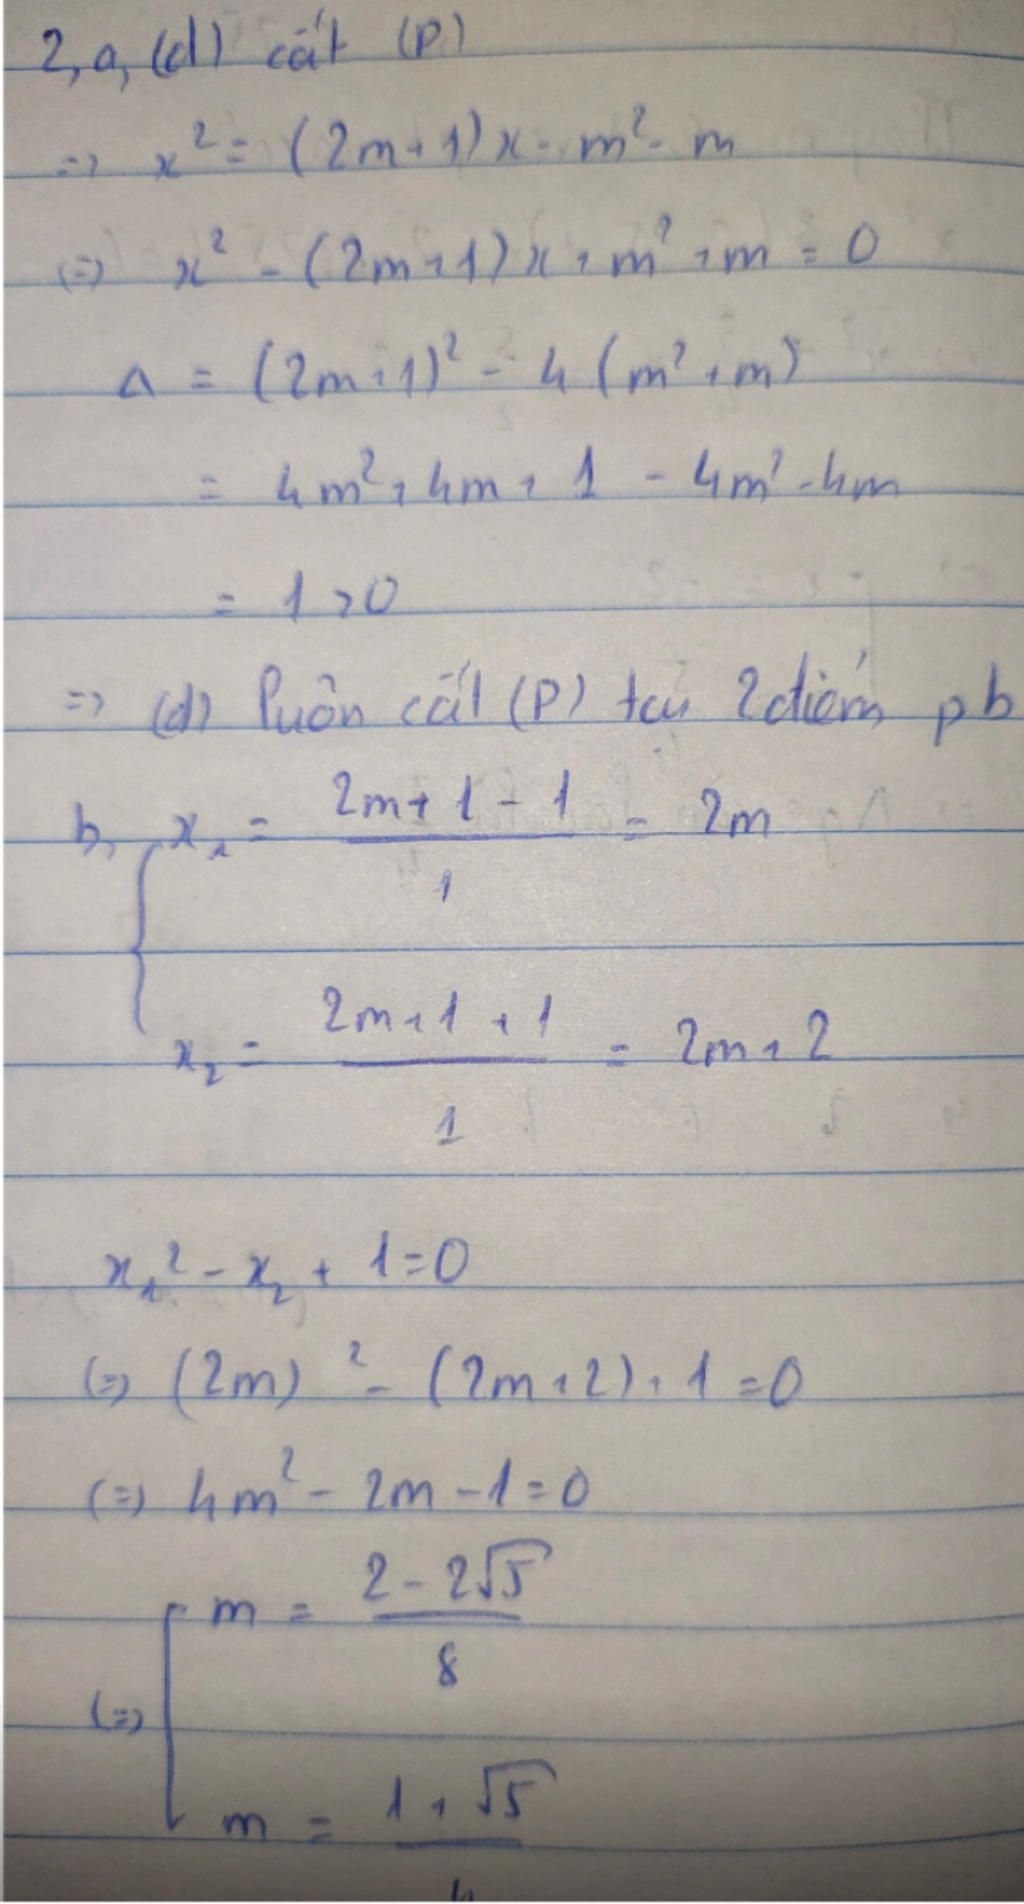 2, a, (d) cắt (P)
=> x² = (2m+1)x - m² - m
(=) x² - (2m+1)x + m² + m = 0
Δ = (2m+1)² - 4(m² + m)
= 4m² + 4m + 1 - 4m² - 4m
= 1 > 0
=> (d) luôn cắt (P) tại 2 điểm pb
b, x₁ = (2m + 1 - 1)/1 = 2m
x₂ = (2m + 1 + 1)/1 = 2m + 2
x₁² - x₂ + 1 = 0
(=) (2m)² - (2m + 2) + 1 = 0
(=) 4m² - 2m - 1 = 0
(=) [ m = (2 - 2√5)/8
m = (1 + √5)/4